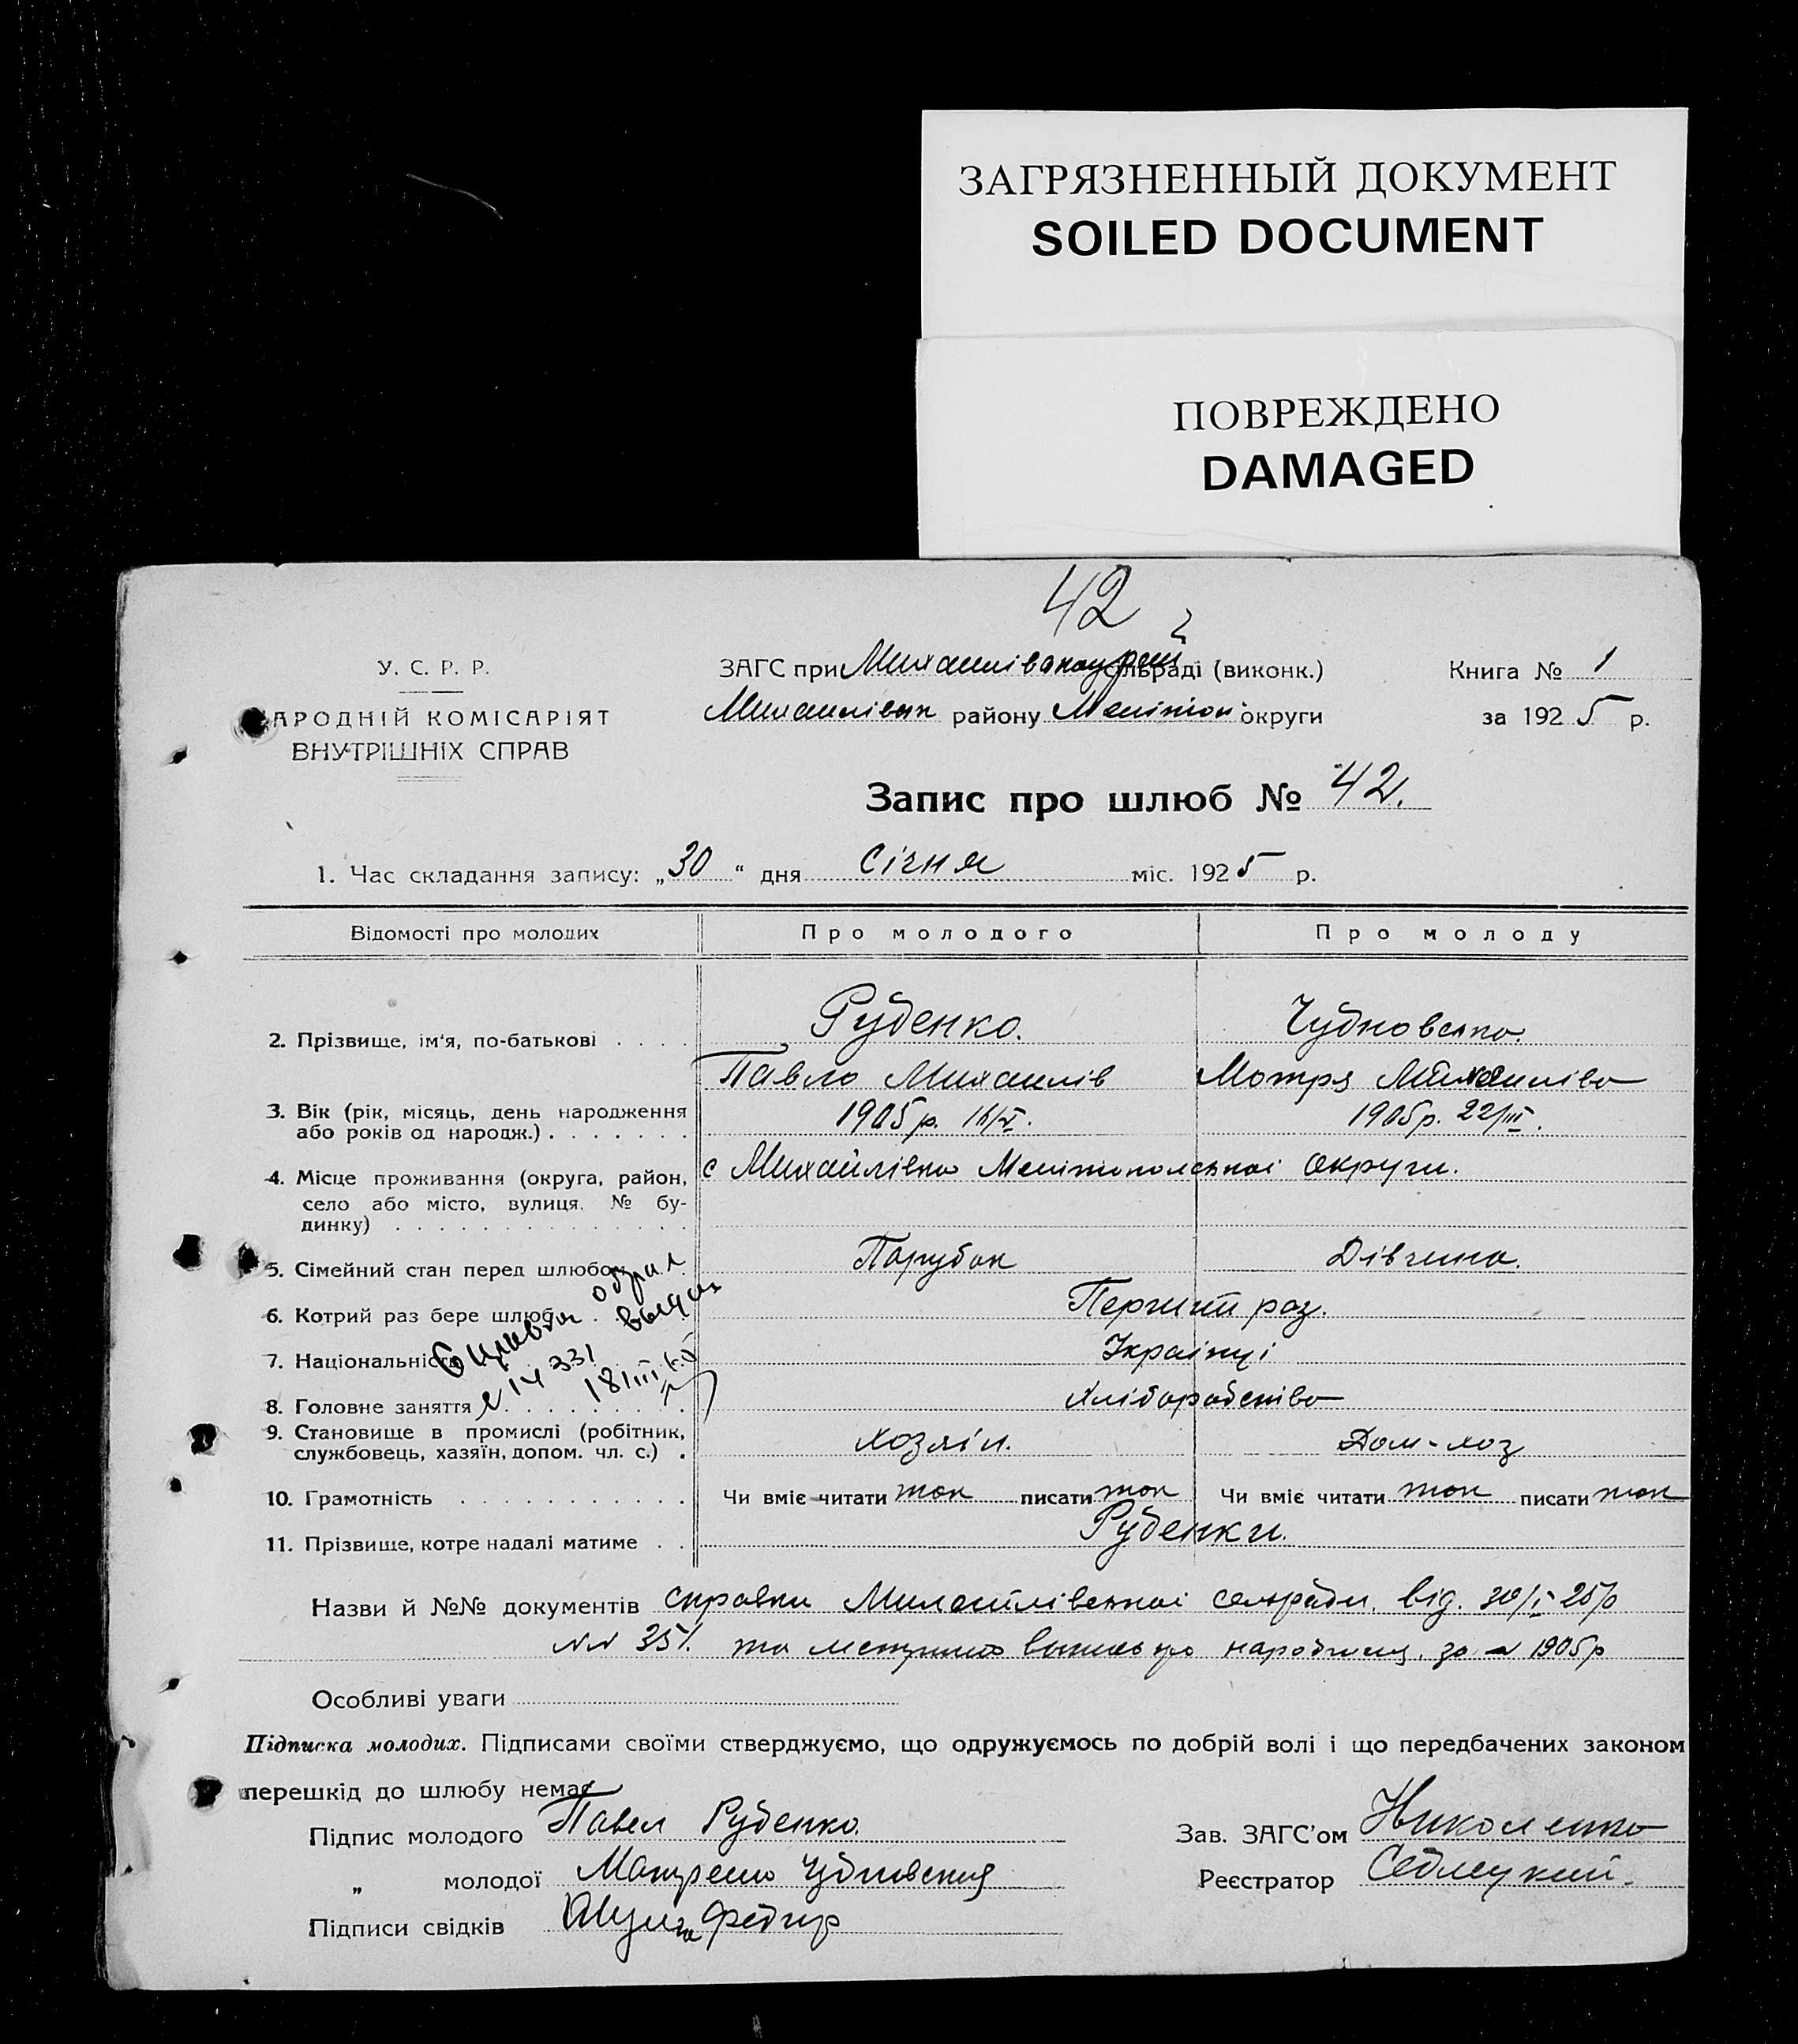 ЗАГРЯЗНЕННЫЙ ДОКУМЕНТ
SOILED DOCUMENT
ПОВРЕЖДЕНО
DAMAGED
42
У. С. Р. Р.
АРОДНІЙ КОМІСАРІЯТ
ВНУТРІШНІХ СПРАВ
ЗАГС при сільраді (виконк.)
Михайлівськ району Мелітоп округи
Книга № 1
за 1925 р.
Запис про шлюб № 42.
1. Час складання запису: „30“ дня Січня міс. 1925 р.
Відомості про молодих Про молодого Про молоду
2. Прізвище, ім'я, по-батькові Руденко. Чудновська.
Павло Михайлів Мотря Михайлівна
3. Вік (рік, місяць, день народження або років од народж.) 1905 р. 1905 р. 22/III.
4. Місце проживання (округа, район, село або місто, вулиця. № будинку) с Михайлівка Мелітопольської округи.
5. Сімейний стан перед шлюбом Парубок Дівчина.
6. Котрий раз бере шлюб Перший раз.
7. Національність Українці
8. Головне заняття Хліборобство
9. Становище в промислі (робітник, службовець, хазяїн, допом. чл. с.) хозяїн. Дом-хоз
10. Грамотність Чи вміє читати так писати так Чи вміє читати так писати так
11. Прізвище, котре надалі матиме Руденки.
Назви й №№ документів справки Михайлівської сельради від. 30/I 25 р
та выпись про народження за 1905 р
Особливі уваги
Підписка молодих. Підписами своїми стверджуємо, що одружуємось по добрій волі і що передбачених законом
перешкід до шлюбу немає
Підпис молодого Павел Руденко.
„ молодої Чудновская
Підписи свідків Федір
Зав. ЗАГС'ом Николенко
Реєстратор Седлецкий.